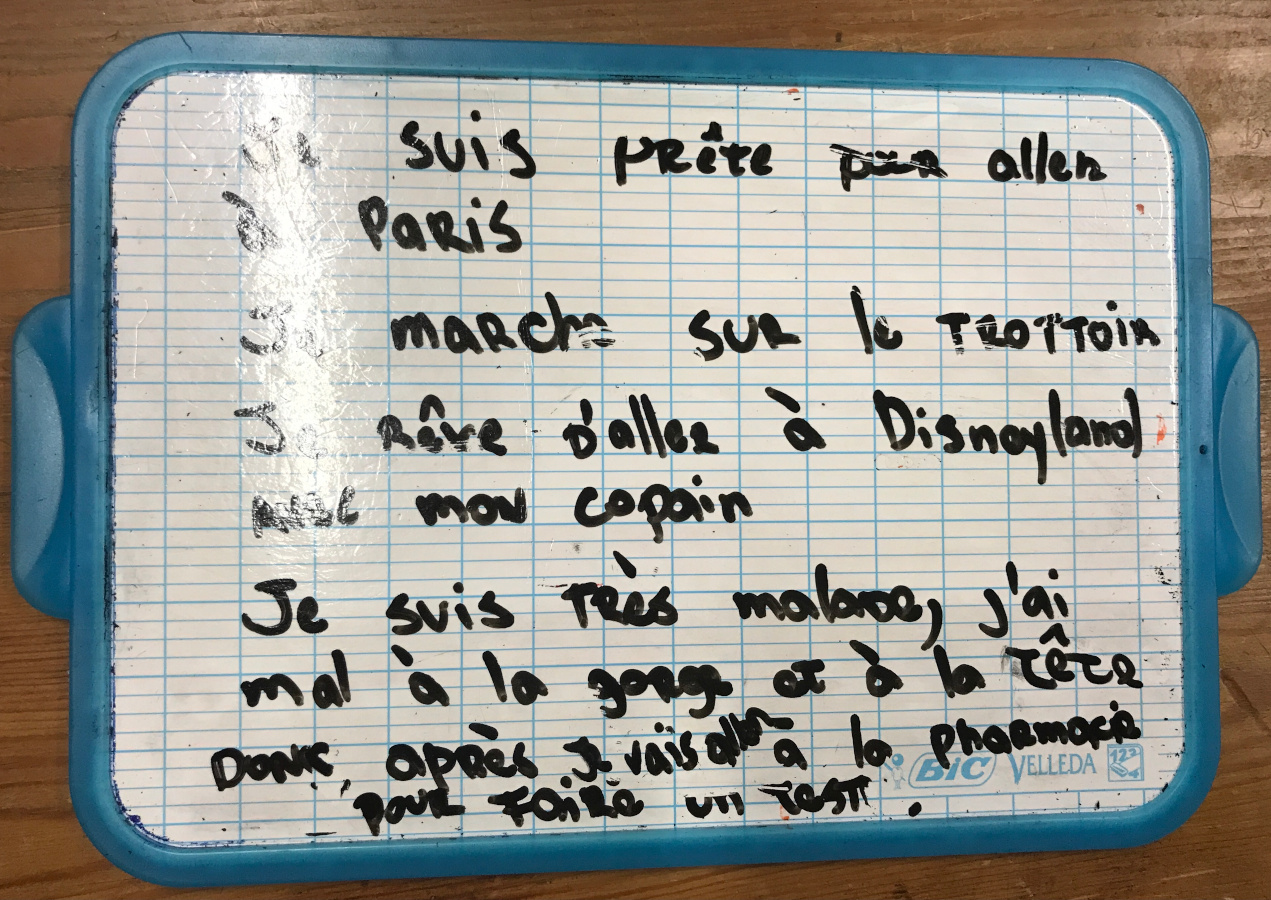 Je suis prête pour aller
à Paris
Je marche sur le trottoir
Je rêve d'aller à Disneyland
avec mon copain
Je suis très malade, j'ai
mal à la gorge et à la tête
Donc, après je vais aller à la pharmacie
BiC VELLEDA
pour faire un test.